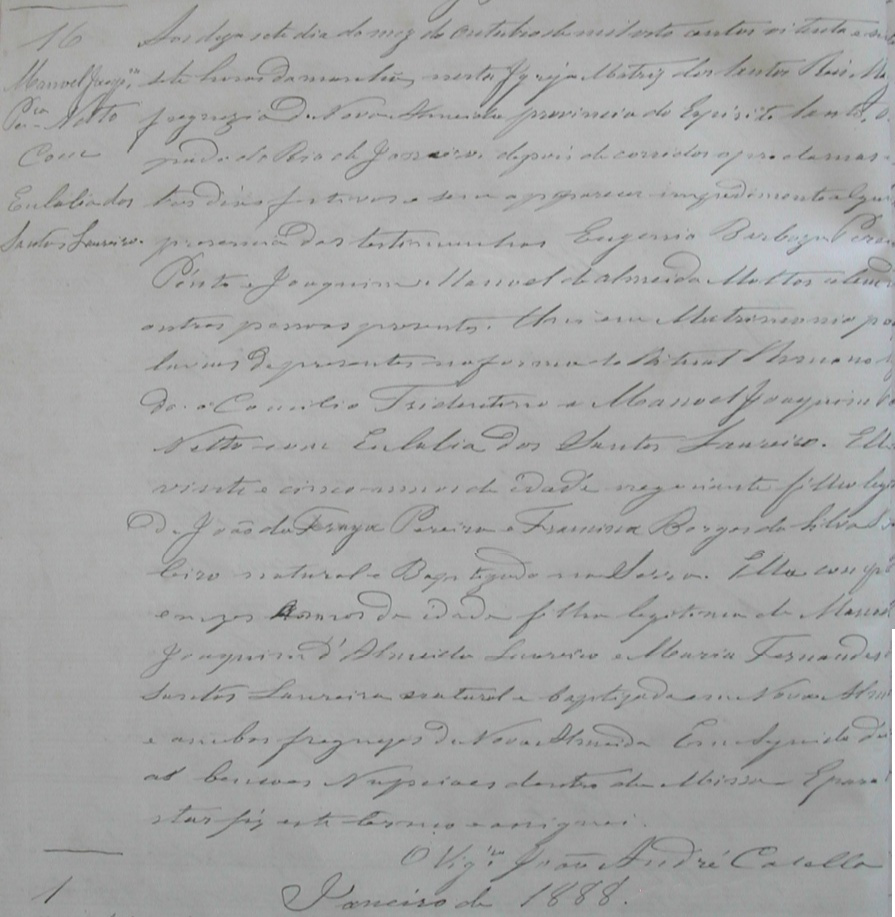 16
Manoel Joaqm
Pra Netto
Com
Eulalia dos
Santos Loureiro.
Aos dezasete dia do mez de Outubro de mil oito centos oitenta e
sete horas da manhã, nesta Igreja Matriz dos Santos Reis
freguezia de Nova Almeida provincia do Espirito Santo,
pado do Rio de Janeiro, depois de corridos os proclamas
tres dias festivos e sem apparecer impedimento algum
presença das testimunhas Eugenio Barboza
Pinto e Joaquim Manoel de Almeida Mattos alem
outras pessoas presentes. Uni em Matrimonio por
lavras de presentes na forma do Ritual Romano
do o Concilio Tridentino a Manoel Joaquim
Netto com Eulalia dos Santos Loureiro. Elle
vinte e cinco annos de idade negociante filho
de João da Fraga Pereira e Francisca Borges da Silva
leiro natural e Baptizado na Serra. Ella com
annos de idade filha legitima de Manoel
Joaquim d'Almeida Loureiro e Maria Fernandes
Santos Loureiro natural e baptizada em Nova
e ambos freguezes de Nova Almeida Em seguida
as bençoas Nupciaes dentro da Missa E para
star fiz este termo e assignei.
O Vigro João André Casella
1
Janeiro de 1888.